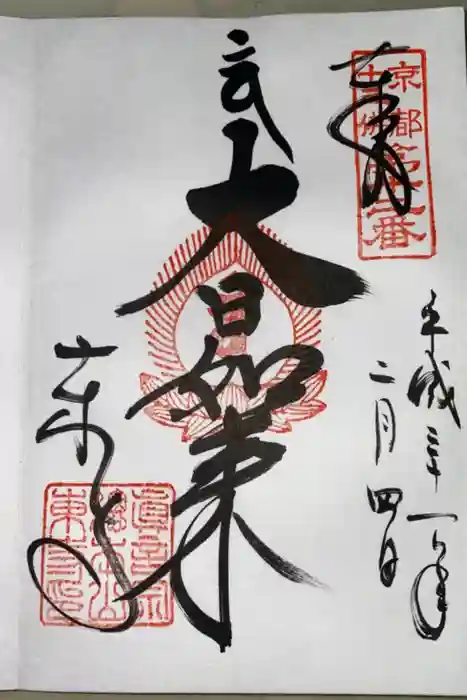 奉拝
京都
十三佛
第十二番
平成三十一年
二月四日
大日如来
東寺
真言宗
総本山
東寺印